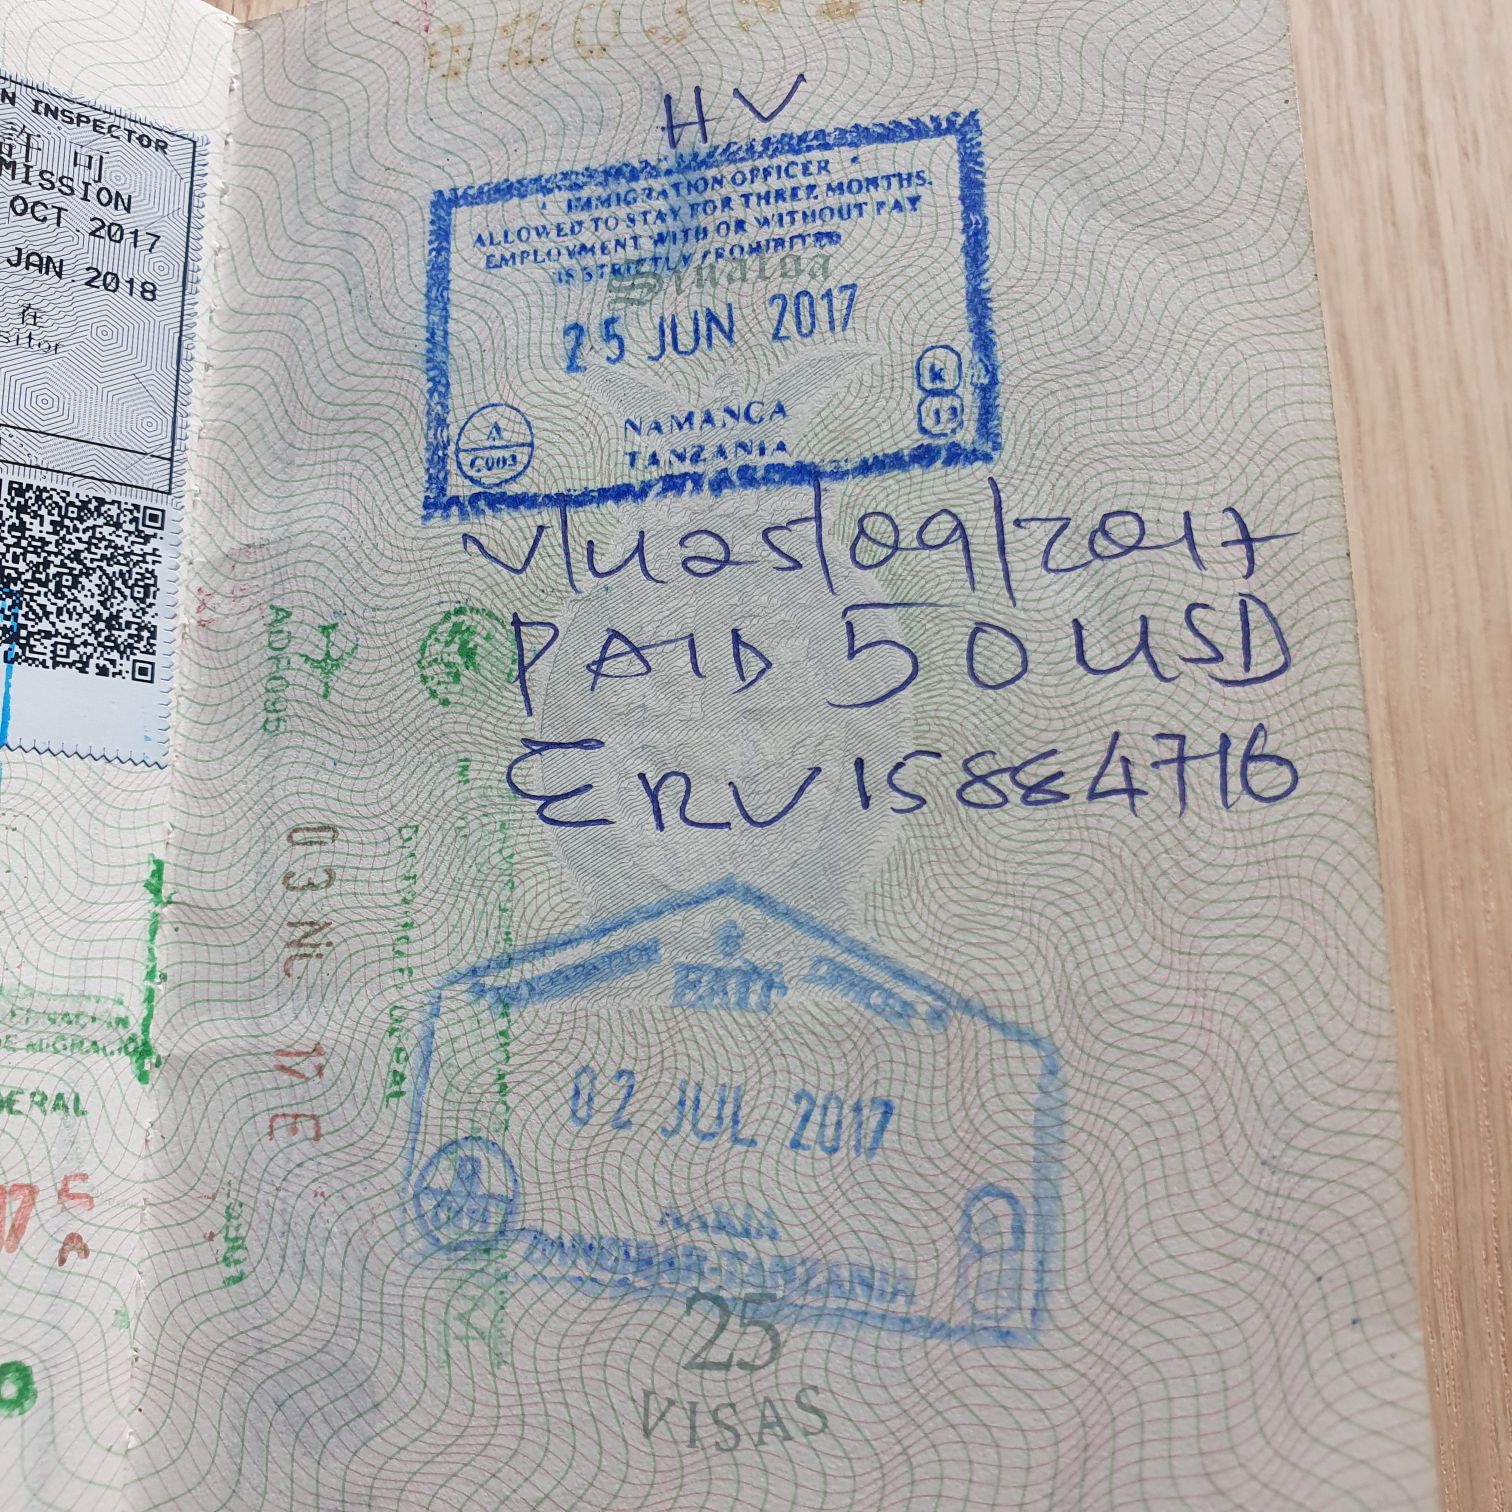 N INSPECTOR
許可
MISSION
OCT 2017
JAN 2018
在
sitor
H V
IMMIGRATION OFFICER
ALLOWED TO STAY FOR THREE MONTHS.
EMPLOYMENT WITH OR WITHOUT PAY
IS STRICTLY PROHIBITED
Sinaloa
25 JUN 2017
A
C003
K
13
NAMANGA
TANZANIA
V/U 25/09/2017
PAID 50 USD
ERV 15884716
EXIT
02 JUL 2017
ZANZIBAR-TANZANIA
25
VISAS
DE MIGRACIÓN
DERAL
17